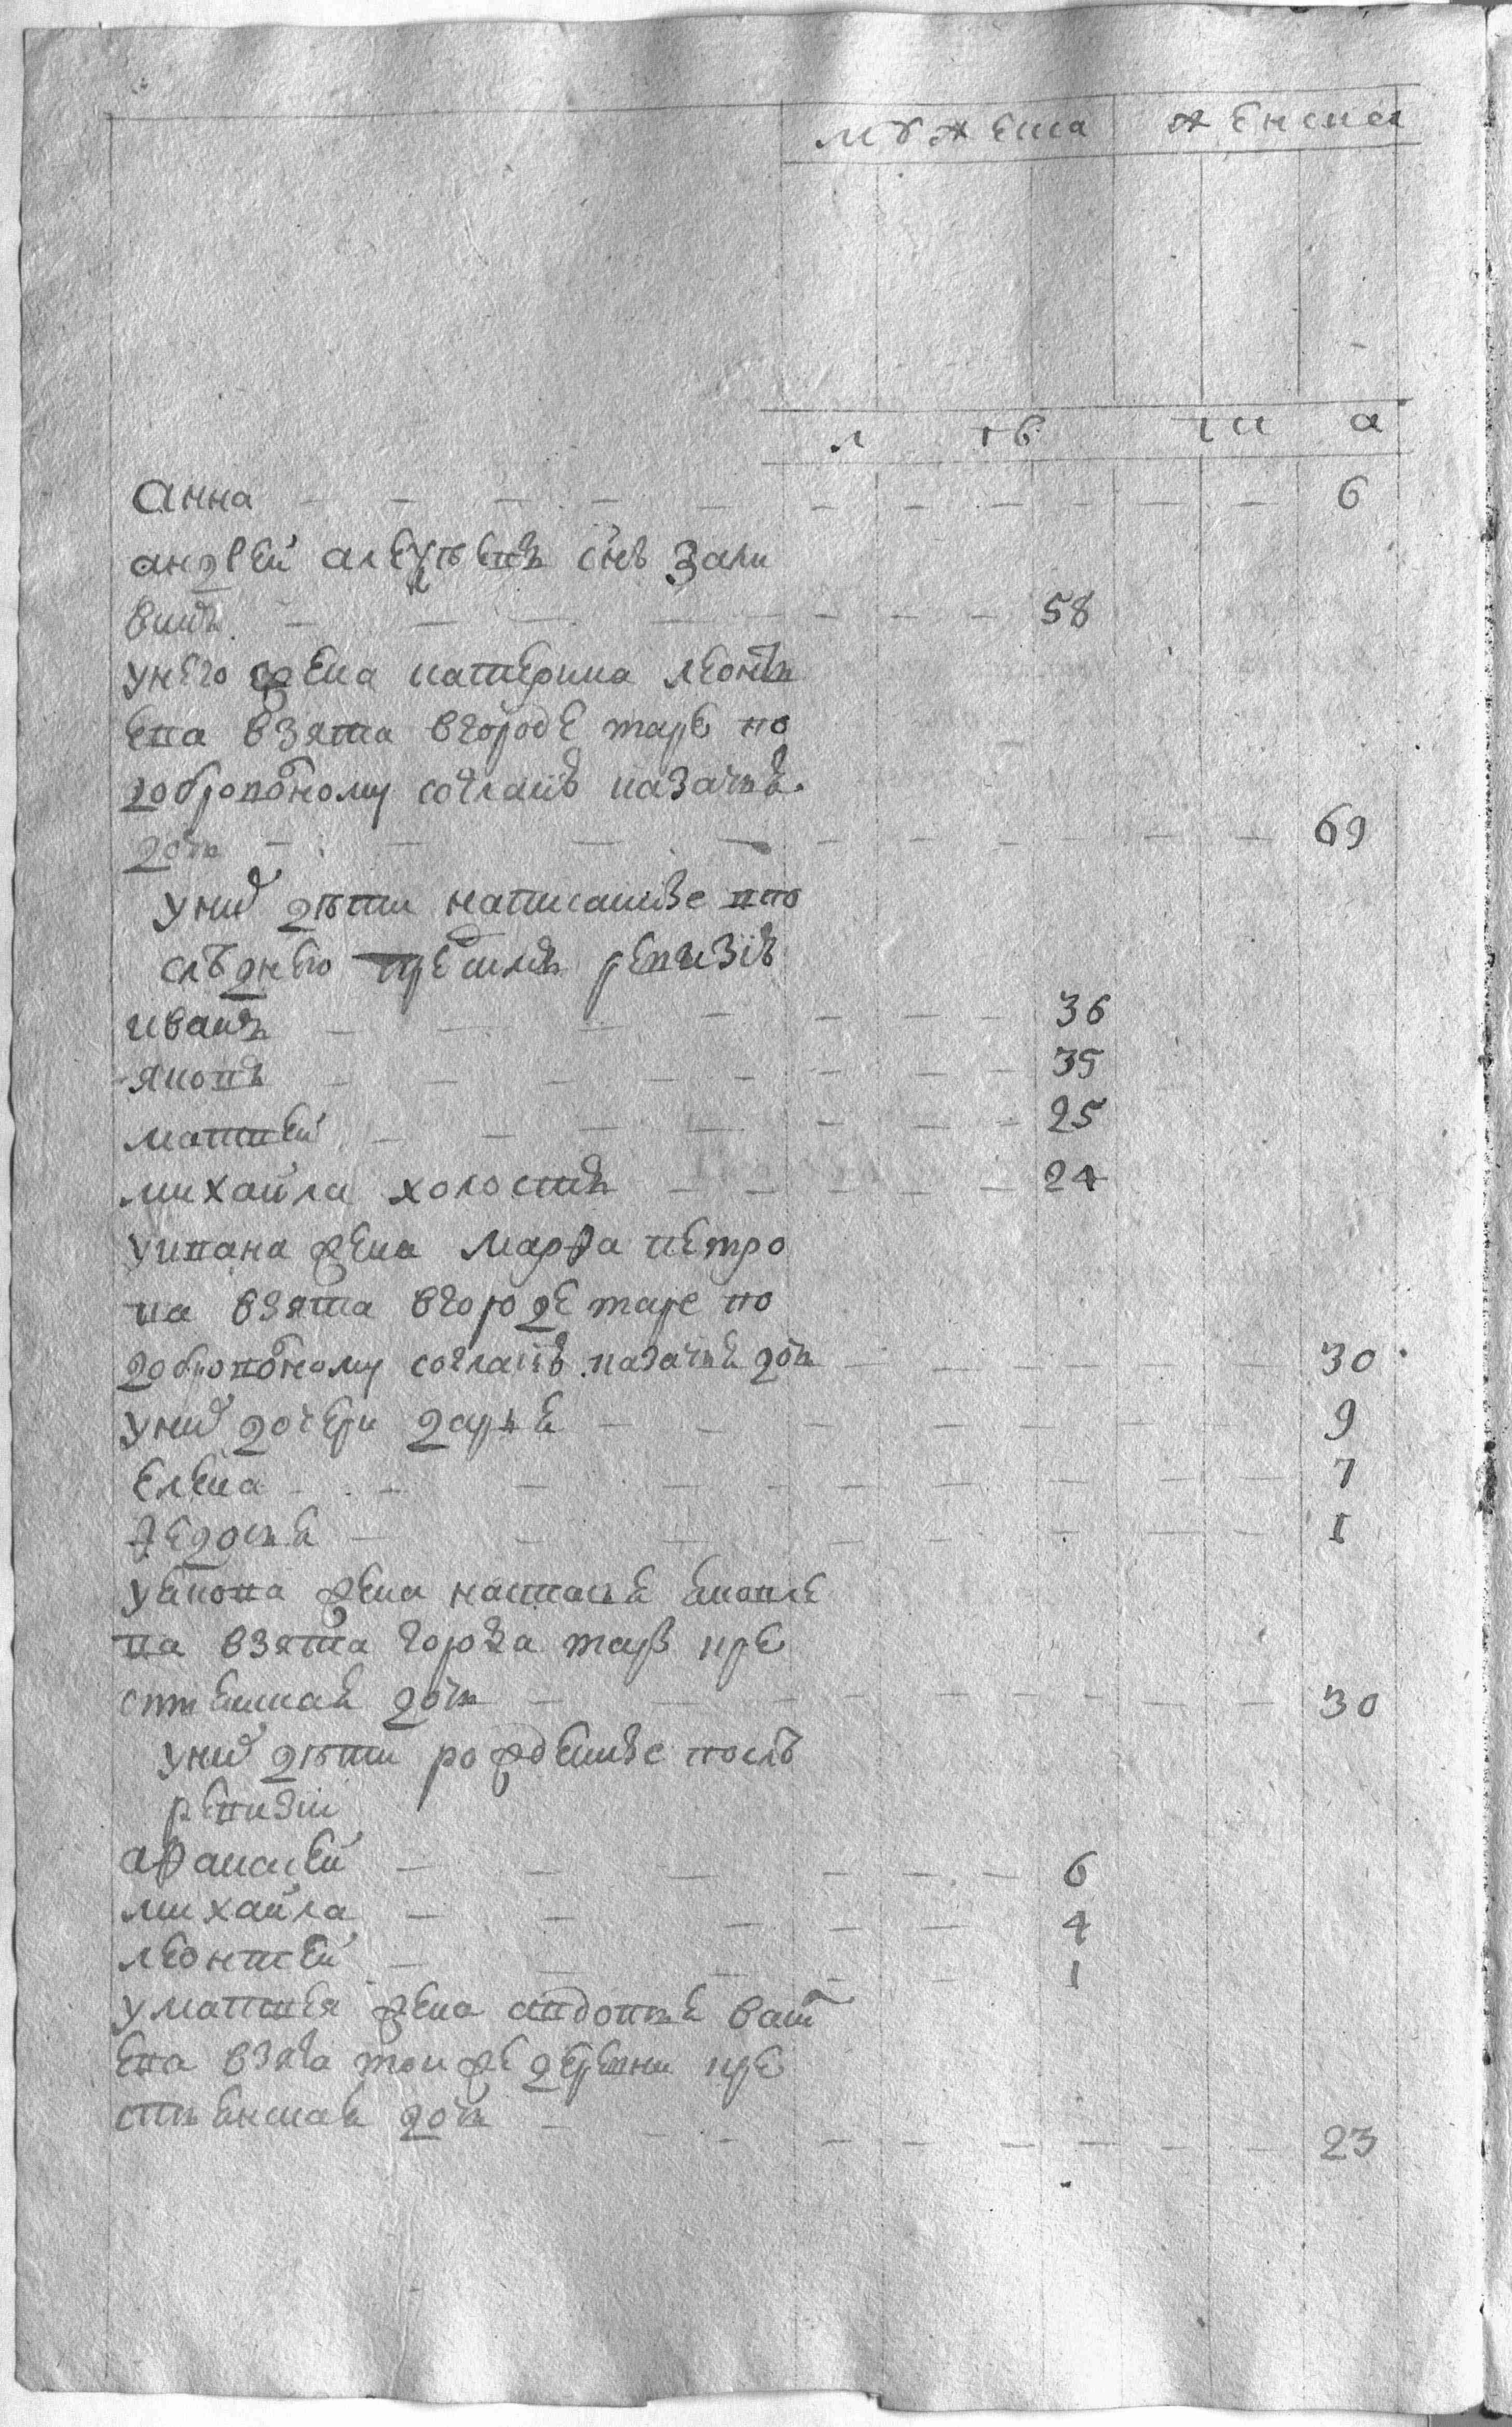 мужеска женска
л тв ти а
Анна 6
андрей алексеевъ снъ Зали
винъ 58
унего жена катерина леонтъ
ева взята вгороде таре по
доброволному согласію казачья
дочь 69
уних дѣти написанные впо
слѣднею пред симъ ревизію
иванъ 36
яковъ 35
матвей 25
михайла холостъ 24
уивана жена Марѳа петро
ва взята вгороде таре по
доброволному согласію казачья дочь 30
уних дочери дарья 9
елена 7
ѳедосья 1
уякова жена настасья яковле
ва взята города тары кре
стьянская дочь 30
уних дѣти рожденные послѣ
ревизіи
аѳанасей 6
михайла 4
леонтей 1
уматвея жена авдотья
ева взята той же деревни кре
стьянская дочь 23